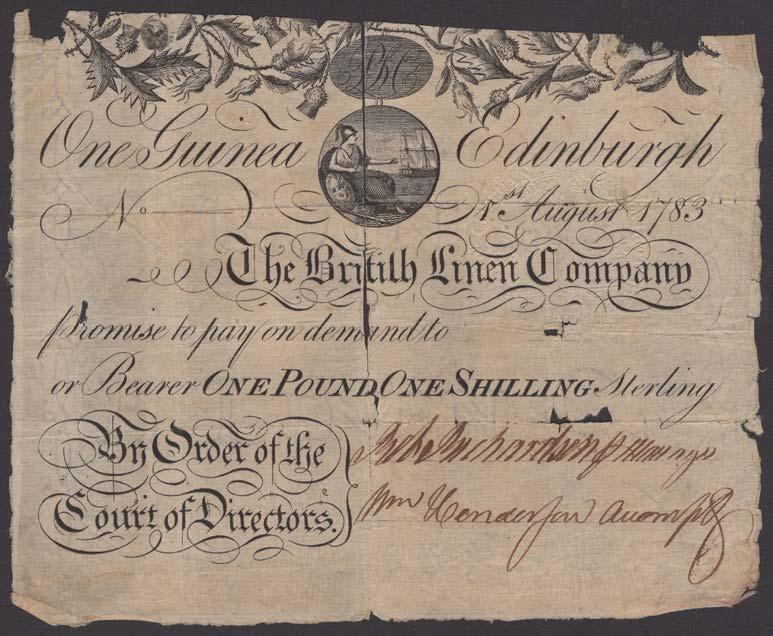 BLC
One Guinea Edinburgh
No 1st August 1783
The British Linen Company
promise to pay on demand to
or Bearer ONE POUND ONE SHILLING Sterling
By Order of the
Court of Directors.
Richardson
Wm Henderson Accompt